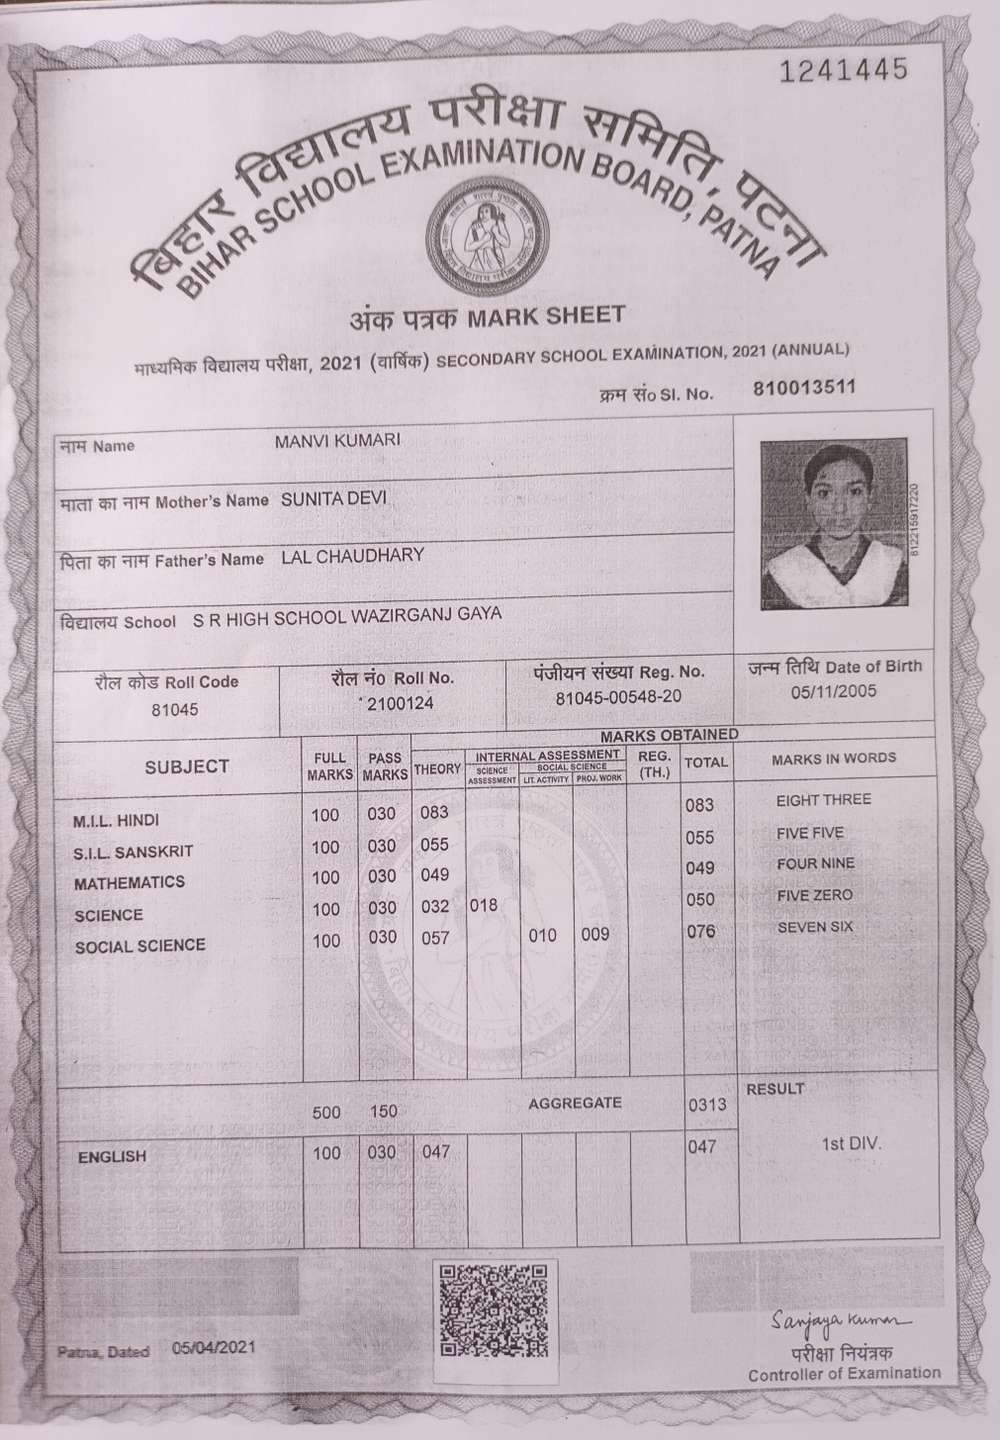 1241445
बिहार विद्यालय परीक्षा समिति, पटना
BIHAR SCHOOL EXAMINATION BOARD, PATNA
अंक पत्रक MARK SHEET
माध्यमिक विद्यालय परीक्षा, 2021 (वार्षिक) SECONDARY SCHOOL EXAMINATION, 2021 (ANNUAL)
क्रम सं० Sl. No. 810013511
नाम Name MANVI KUMARI
माता का नाम Mother's Name SUNITA DEVI
812215917220
पिता का नाम Father's Name LAL CHAUDHARY
विद्यालय School S R HIGH SCHOOL WAZIRGANJ GAYA
रौल कोड Roll Code रौल नं० Roll No. पंजीयन संख्या Reg. No. जन्म तिथि Date of Birth
81045 2100124 81045-00548-20 05/11/2005
MARKS OBTAINED
SUBJECT FULL MARKS PASS MARKS THEORY INTERNAL ASSESSMENT REG. (TH.) TOTAL MARKS IN WORDS
SCIENCE ASSESSMENT SOCIAL SCIENCE
LIT. ACTIVITY PROJ. WORK
M.I.L. HINDI 100 030 083 083 EIGHT THREE
S.I.L. SANSKRIT 100 030 055 055 FIVE FIVE
MATHEMATICS 100 030 049 049 FOUR NINE
SCIENCE 100 030 032 018 050 FIVE ZERO
SOCIAL SCIENCE 100 030 057 010 009 076 SEVEN SIX
500 150 AGGREGATE 0313 RESULT
ENGLISH 100 030 047 047 1st DIV.
Patna, Dated 05/04/2021
Sanjaya Kumar
परीक्षा नियंत्रक
Controller of Examination